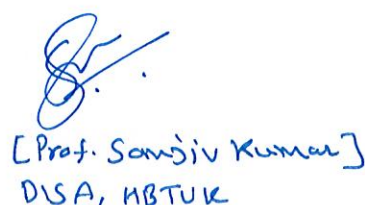 [Prof. Sanjiv Kumar]
DISA, HBTUK